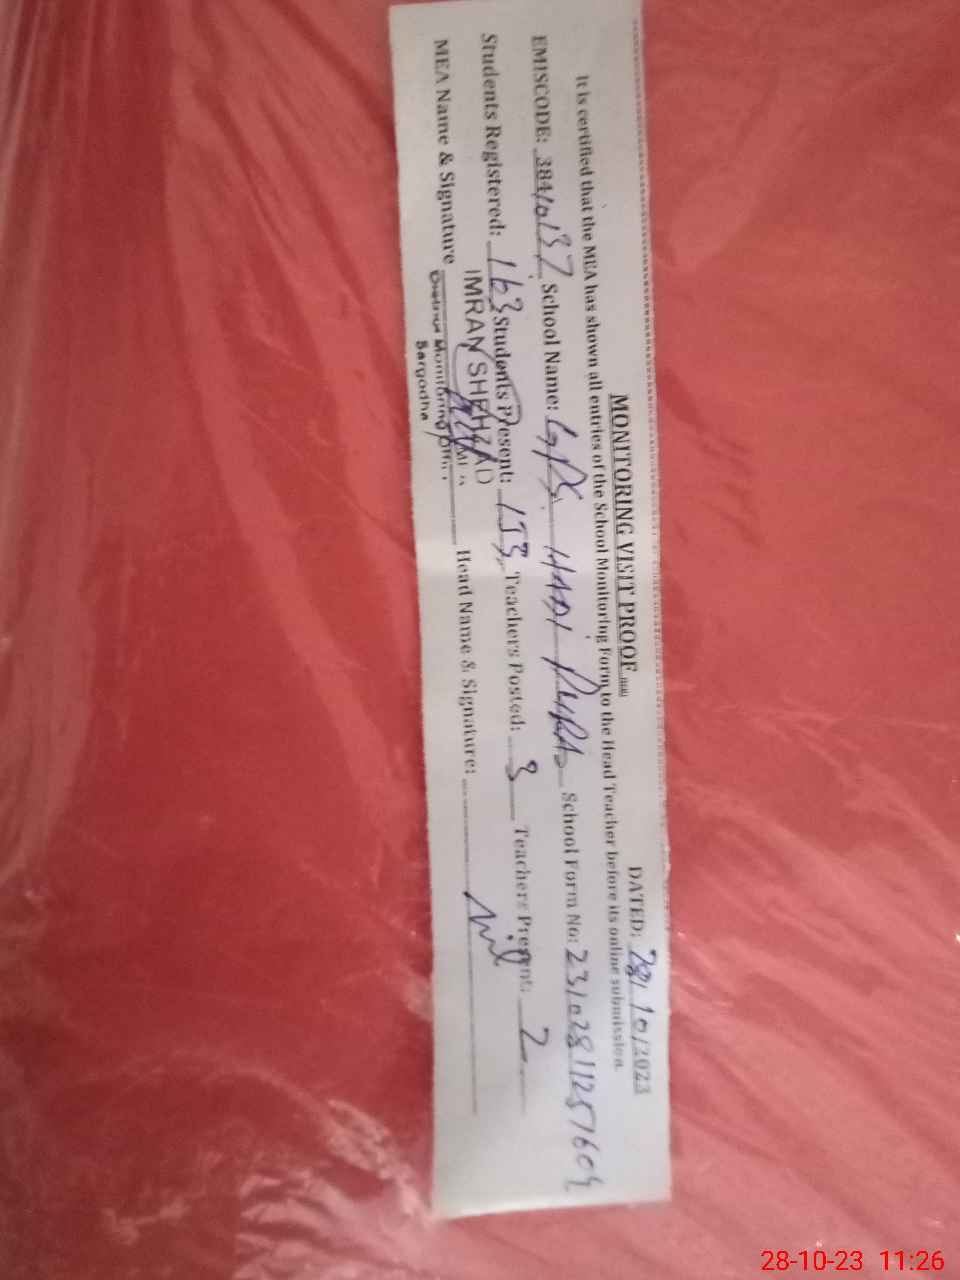 MONITORING VISIT PROOF
DATED: 28/10/2023
It is certified that the MEA has shown all entries of the School Monitoring Form to the Head Teacher before its online submission
EMISCODE: 38410137 School Name: GPS HADI PURA School Form No: 231028112571604
Students Registered: 163 Students Present: 133 Teachers Posted: 3 Teachers Present: 2
MEA Name & Signature IMRAN SHEHZAD Head Name & Signature: Nil
MEA
District Monitoring Offi..
Sargodha
28-10-23 11:26